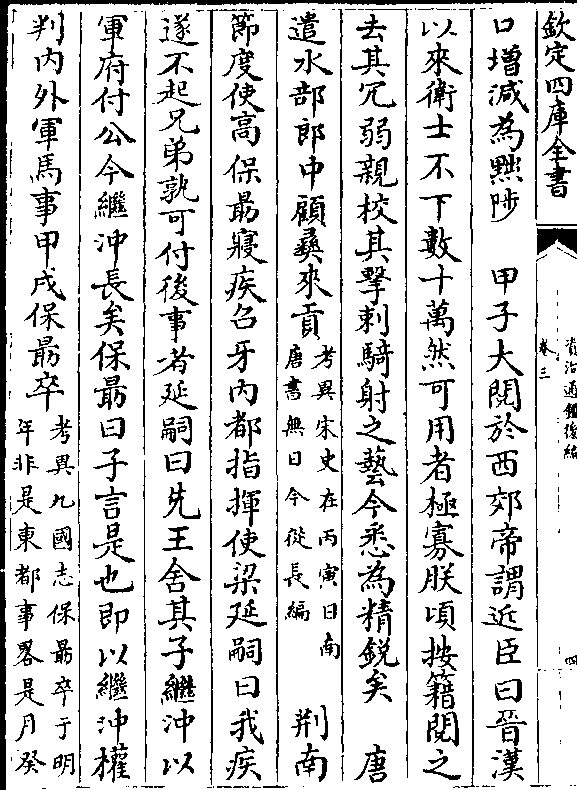 欽定四庫全書
資治通鑑後編
卷三
四
口增減為黜陟　甲子大閱於西郊帝謂近臣曰晉漢
以來衛士不下數十萬然可用者極寡朕頃按籍閱之
去其冗弱親校其擊刺騎射之藝今悉為精銳矣　唐
遣水部郎中顧彝來貢考異宋史在丙寅日南
唐書無日今從長編　荆南
節度使高保勗寢疾召牙內都指揮使梁延嗣曰我疾
遂不起兄弟孰可付後事者延嗣曰先王舍其子繼沖以
軍府付公今繼沖長矣保勗曰子言是也即以繼沖權
判內外軍馬事甲戌保勗卒考異九國志保勗卒于明
年非是東都事畧是月癸